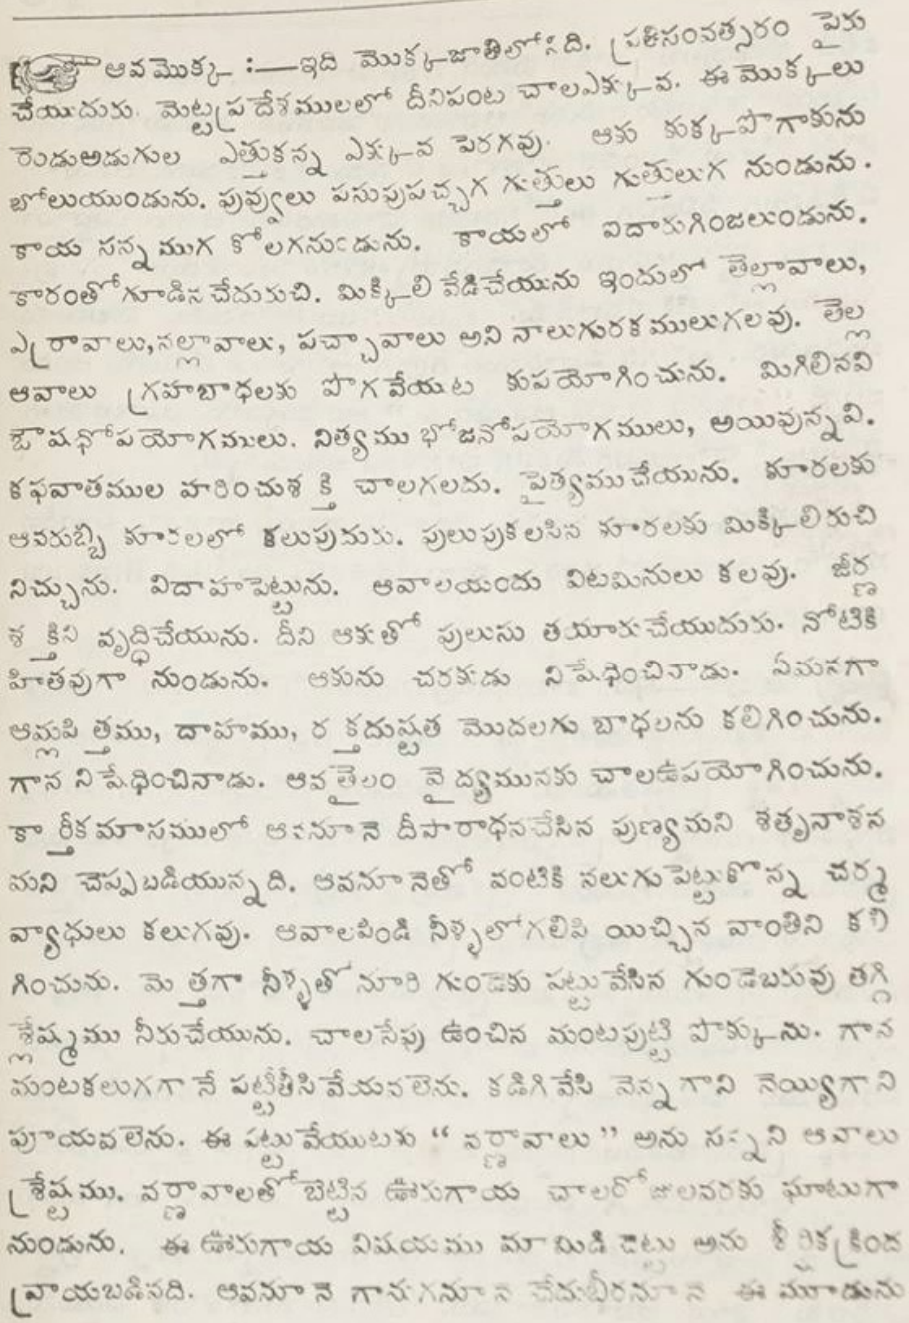 ఆవమొక్క :—ఇది మొక్కజాతిలోనిది. ప్రతిసంవత్సరం పైరు
చేయుదురు. మెట్టప్రదేశములలో దీనిపంట చాలఎక్కువ. ఈ మొక్కలు
రెండుఅడుగుల ఎత్తుకన్న ఎక్కువ పెరగవు. ఆకు కుక్కపొగాకును
బోలుయుండును. పువ్వులు పసుపుపచ్చగ గుత్తులు గుత్తులుగ నుండును.
కాయ సన్నముగ కోలగనుండును. కాయలో ఐదారుగింజలుండును.
కారంతోగూడిన చేదురుచి. మిక్కిలి వేడిచేయును ఇందులో తెల్లావాలు,
ఎర్రావాలు, నల్లావాలు, పచ్చావాలు అని నాలుగురకములుగలవు. తెల్ల
ఆవాలు గ్రహబాధలకు పొగవేయుట కుపయోగించును. మిగిలినవి
ఔషధోపయోగములు. నిత్యము భోజనోపయోగములు, అయివున్నవి.
కఫవాతముల హరించుశక్తి చాలగలదు. పైత్యముచేయును. కూరలకు
ఆవరుబ్బి కూరలలో కలుపుదురు. పులుపుకలసిన కూరలకు మిక్కిలిరుచి
నిచ్చును. విదాహపెట్టును. ఆవాలయందు విటమినులు కలవు. జీర్ణ
శక్తిని వృద్ధిచేయును. దీని ఆకుతో పులుసు తయారుచేయుదురు. నోటికి
హితవుగా నుండును. ఆకును చరకుడు నిషేధించినాడు. ఏమనగా
ఆమ్లపిత్తము, దాహము, రక్తదుష్టత మొదలగు బాధలను కలిగించును.
గాన నిషేధించినాడు. ఆవతైలం వైద్యమునకు చాలఉపయోగించును.
కార్తీకమాసములో ఆవనూనె దీపారాధనచేసిన పుణ్యమని శతృనాశన
మని చెప్పబడియున్నది. ఆవనూనెతో వంటికి నలుగుపెట్టుకొన్న చర్మ
వ్యాధులు కలుగవు. ఆవాలపిండి నీళ్ళలోగలిపి యిచ్చిన వాంతిని కలి
గించును. మెత్తగా నీళ్ళతో నూరి గుండెకు పట్టువేసిన గుండెబరువు తగ్గి
శ్లేష్మము నీరుచేయును. చాలసేపు ఉంచిన మంటపుట్టి పొక్కును. గాన
మంటకలుగగానే పట్టీతీసివేయవలెను. కడిగివేసి వెన్నగాని నెయ్యిగాని
పూయవలెను. ఈ పట్టువేయుటకు “వర్ణావాలు” అను సన్నని ఆవాలు
శ్రేష్టము. వర్ణావాలతోబెట్టిన ఊరుగాయ చాలరోజులవరకు ఘాటుగా
నుండును. ఈ ఊరుగాయ విషయము మామిడి చెట్టు అను శీర్షికక్రింద
వ్రాయబడినది. ఆవనూనె గానుగనూనె చేదుబీరనూనె ఈ మూడును